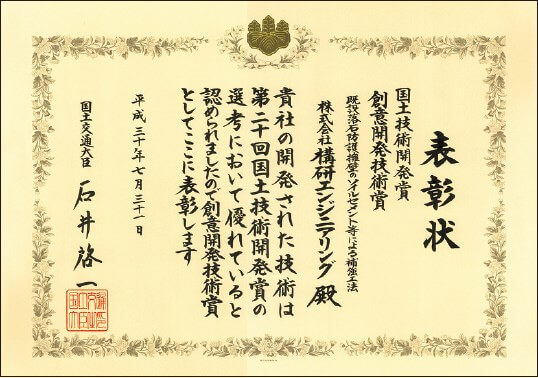 表彰状
国土技術開発賞
創意開発技術賞
既設落石防護擁壁のソイルセメント等による補強工法
株式会社 構研エンジニアリング 殿
貴社の開発された技術は
第二十回国土技術開発賞の
選考において優れていると
認められましたので創意開発技術賞
としてここに表彰します
平成三十年七月三十一日
国土交通大臣 石井啓一